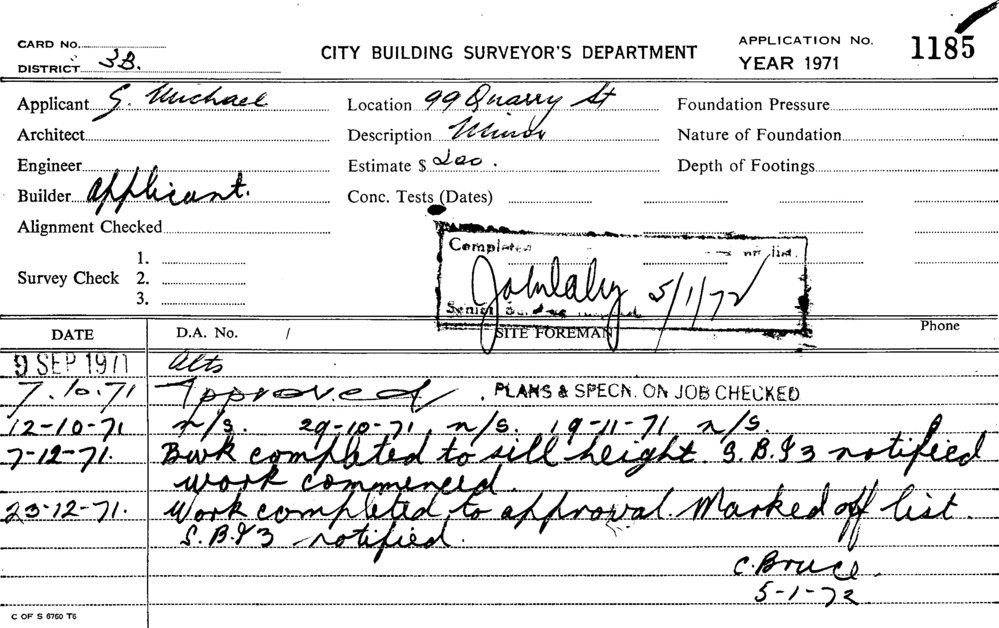 CARD No.
DISTRICT 3B.
CITY BUILDING SURVEYOR'S DEPARTMENT
APPLICATION No. 1185
YEAR 1971
Applicant G. Michael
Location 99 Quarry St
Foundation Pressure
Architect
Description Minor
Nature of Foundation
Engineer
Estimate $ 200.
Depth of Footings
Builder applicant.
Conc. Tests (Dates)
Alignment Checked
Survey Check 1.
2.
3.
Completed list.
5/1/72
Senior
DATE D.A. No. / SITE FOREMAN Phone
9 SEP 1971 Alts
7.10.71 Approved. PLANS & SPECN. ON JOB CHECKED
12-10-71 n/s. 29-10-71, n/s. 19-11-71 n/s.
7-12-71. Bwk completed to sill height. S.B.I3 notified
work commenced.
23-12-71. Work completed to approval. Marked off list.
S.B.I3 notified.
C. Bruce.
5-1-72
C OF S 6760 T6